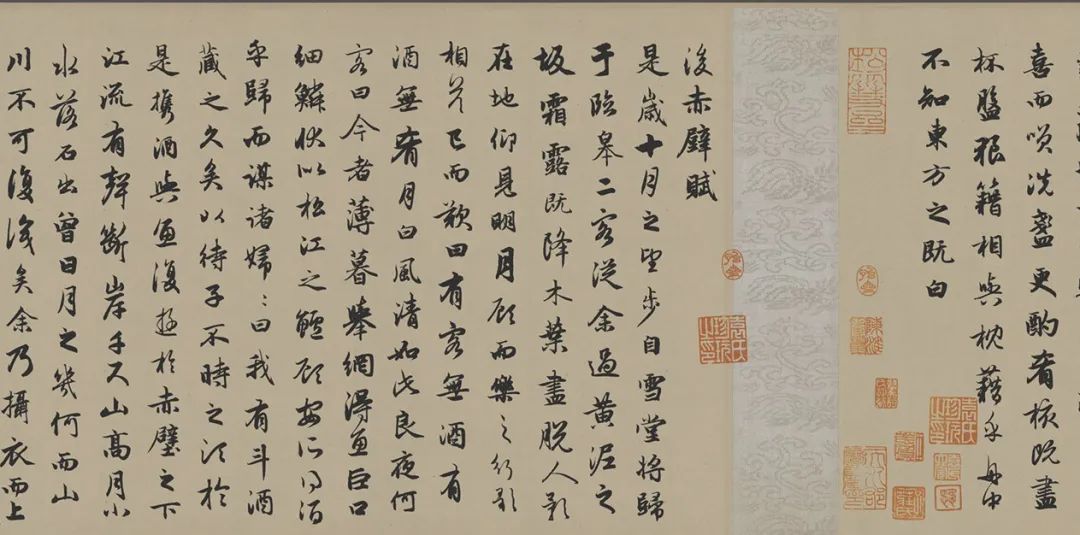 喜而咲洗盞更酌肴核既盡
杯盤狼籍相與枕藉乎舟中
不知東方之既白
後赤壁賦
是歲十月之望步自雪堂將歸
于臨皋二客從余過黃泥之
坂霜露既降木葉盡脫人影
在地仰見明月顧而樂之行歌
相答已而歎曰有客無酒有
酒無肴月白風清如此良夜何
客曰今者薄暮舉網得魚巨口
細鱗狀似松江之鱸顧安所得酒
乎歸而謀諸婦〻曰我有斗酒
藏之久矣以待子不時之須於
是攜酒與魚復遊於赤壁之下
江流有聲斷岸千尺山高月小
水落石出曾日月之幾何而山
川不可復識矣余乃攝衣而上